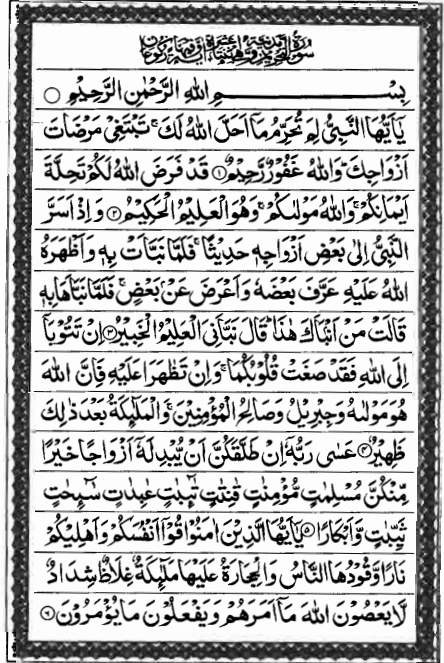 سُوْرَةُ التَّحْرِيْمِ
بِسْمِ اللهِ الرَّحْمٰنِ الرَّحِيْمِ ○
يٰۤاَيُّهَا النَّبِيُّ لِمَ تُحَرِّمُ مَاۤ اَحَلَّ اللهُ لَكَ ۚ تَبْتَغِيْ مَرْضَاتَ
اَزْوَاجِكَ ؕ وَاللهُ غَفُوْرٌ رَّحِيْمٌ ۱ قَدْ فَرَضَ اللهُ لَكُمْ تَحِلَّةَ
اَيْمَانِكُمْ ۚ وَاللهُ مَوْلٰىكُمْ ۚ وَهُوَ الْعَلِيْمُ الْحَكِيْمُ ۲ وَاِذْ اَسَرَّ
النَّبِيُّ اِلٰى بَعْضِ اَزْوَاجِهٖ حَدِيْثًا ۚ فَلَمَّا نَبَّاَتْ بِهٖ وَاَظْهَرَهُ
اللهُ عَلَيْهِ عَرَّفَ بَعْضَهٗ وَاَعْرَضَ عَنْۢ بَعْضٍ ۚ فَلَمَّا نَبَّاَهَا بِهٖ
قَالَتْ مَنْ اَنْۢبَاَكَ هٰذَا ؕ قَالَ نَبَّاَنِيَ الْعَلِيْمُ الْخَبِيْرُ ۳ اِنْ تَتُوْبَاۤ
اِلَى اللهِ فَقَدْ صَغَتْ قُلُوْبُكُمَا ۚ وَاِنْ تَظٰهَرَا عَلَيْهِ فَاِنَّ اللهَ
هُوَ مَوْلٰىهُ وَجِبْرِيْلُ وَصَالِحُ الْمُؤْمِنِيْنَ ۚ وَالْمَلٰٓئِكَةُ بَعْدَ ذٰلِكَ
ظَهِيْرٌ ۴ عَسٰى رَبُّهٗۤ اِنْ طَلَّقَكُنَّ اَنْ يُّبْدِلَهٗۤ اَزْوَاجًا خَيْرًا
مِّنْكُنَّ مُسْلِمٰتٍ مُّؤْمِنٰتٍ قٰنِتٰتٍ تٰۤئِبٰتٍ عٰبِدٰتٍ سٰٓئِحٰتٍ
ثَيِّبٰتٍ وَّاَبْكَارًا ۵ يٰۤاَيُّهَا الَّذِيْنَ اٰمَنُوْا قُوْۤا اَنْفُسَكُمْ وَاَهْلِيْكُمْ
نَارًا وَّقُوْدُهَا النَّاسُ وَالْحِجَارَةُ عَلَيْهَا مَلٰٓئِكَةٌ غِلَاظٌ شِدَادٌ
لَّا يَعْصُوْنَ اللهَ مَاۤ اَمَرَهُمْ وَيَفْعَلُوْنَ مَا يُؤْمَرُوْنَ ۶